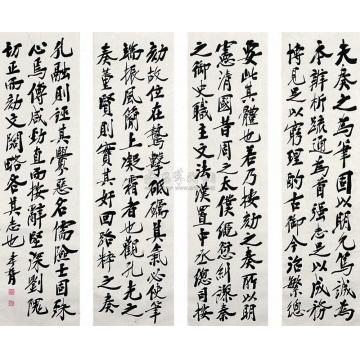 夫奏之為筆固以明允篤誠為
本辨析疏通為首强志足以成務
博見足以窮理酌古御今治繁總
要此其體也若乃按劾之奏所以明
憲清國昔周之太僕繩愆糾謬秦
之御史職主文法漢置中丞總司按
劾故位在鷙擊砥礪其氣必使筆
端振風簡上凝霜者也觀孔光之
奏董賢則實其奸回路粹之奏
孔融則誣其釁惡名儒險士固殊
心焉傅咸勁直而按辭堅深劉隗
切正而劾文闊略各其志也